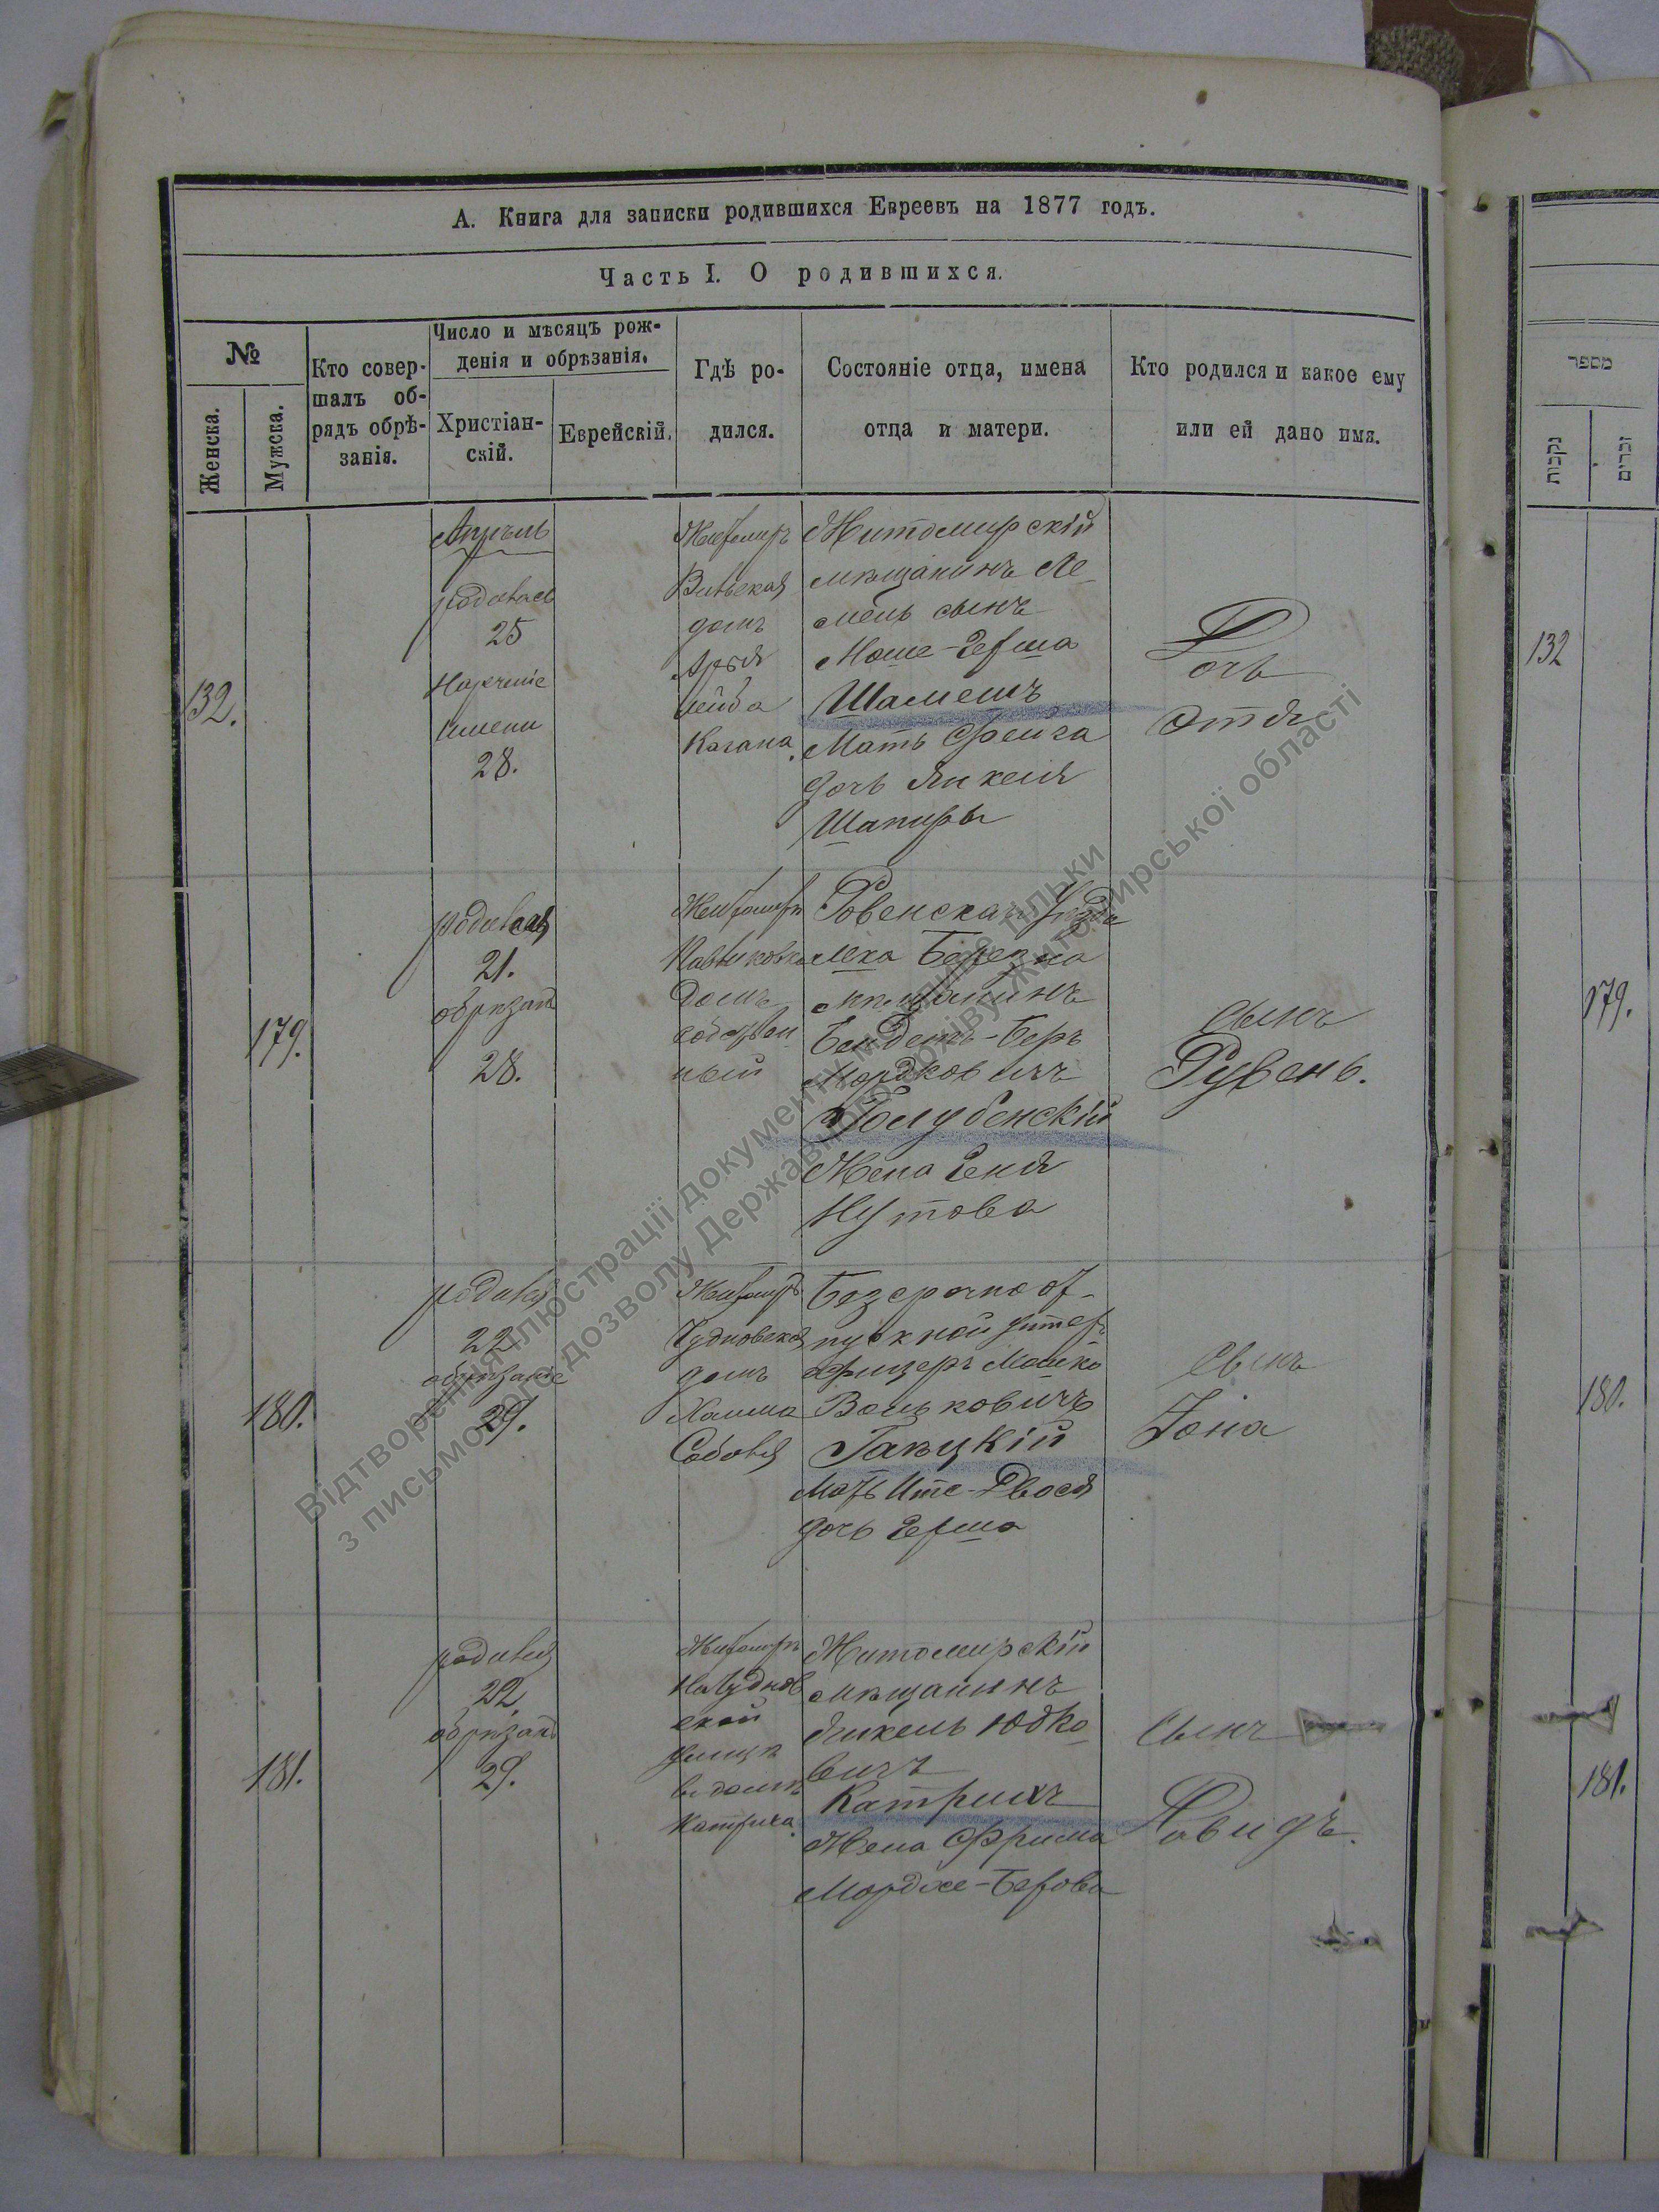 А. Книга для записки родившихся Евреевъ на 1877 годъ.
Часть I. О родившихся.
№
Женска.
Мужска.
Кто совер-
шалъ об-
рядъ обрѣ-
занія.
Число и мѣсяцъ рож-
денія и обрѣзанія.
Христіан-
скій.
Еврейскій.
Гдѣ ро-
дился.
Состояніе отца, имена
отца и матери.
Кто родился и какое ему
или ей дано имя.
132.
Апрѣль
родилась
25
Нареченіе
имени
28.
Житомиръ
Вильская
домъ
Арья
лейба
Кагана.
Житомирскій
мѣщанинъ Ле-
мель сынъ
Моше-Герша
Шамешъ
Мать Фейга
дочь Янкеля
Шапиры
Дочь
Этя
179.
родился
21.
обрѣзанъ
28.
Житомиръ
Павликовка
Домъ
собствен-
ный
Ровенскаго Уѣзда
мска Березна
мѣщанинъ
Бендетъ-Беръ
Мордковичъ
Голубенскій
Жена Геня
Нутова
Сынъ
Рувень.
180.
родился
22
обрѣзаніе
29.
Житомиръ
Чудновская
домъ
Хаима
Безсрочноот-
пускной унтеръ
Офицеръ Мошко
Вольковичъ
Гапуцкій
Мать Ите-Двося
дочь Герша
Сынъ
Іона
181.
родился
22.
обрѣзанъ
29.
Житомиръ
На Чуднов
ской
улицѣ
въ домѣ
Катриха.
Житомирскій
мѣщанинъ
Янкель Юдко-
вичъ
Катрихъ
Жена Фрима
Мордхе-Берова
Сынъ
Давидъ.
מספר
נקבות
זכרים
132
179.
180.
181.
Відтворення ілюстрації документу можливе тільки
з письмового дозволу Державного архіву Житомирської області